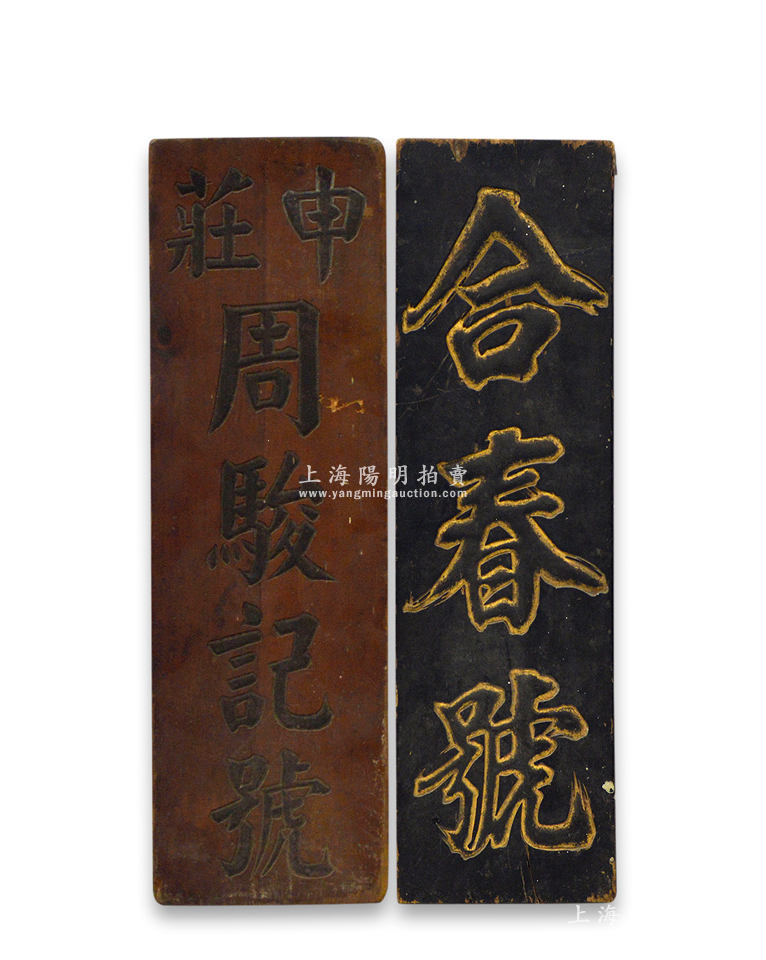 申莊
周駿記號
合春號
上海陽明拍賣
www.yangmingauction.com
上海